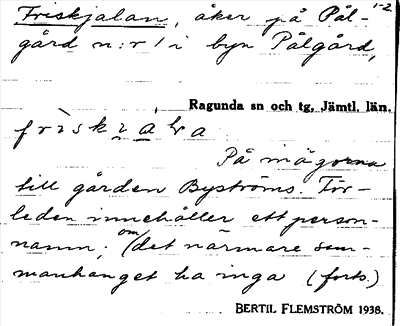 1-2
Friskjalan, åker på Pål-
gård n:r 1 i byn Pålgård,
Ragunda sn och tg, Jämtl. län.
På mågorna
till gården Byströms. För-
leden innehåller ett person-
namn; om det närmare sam-
manhanget ha inga (forts.)
BERTIL FLEMSTRÖM 1938.